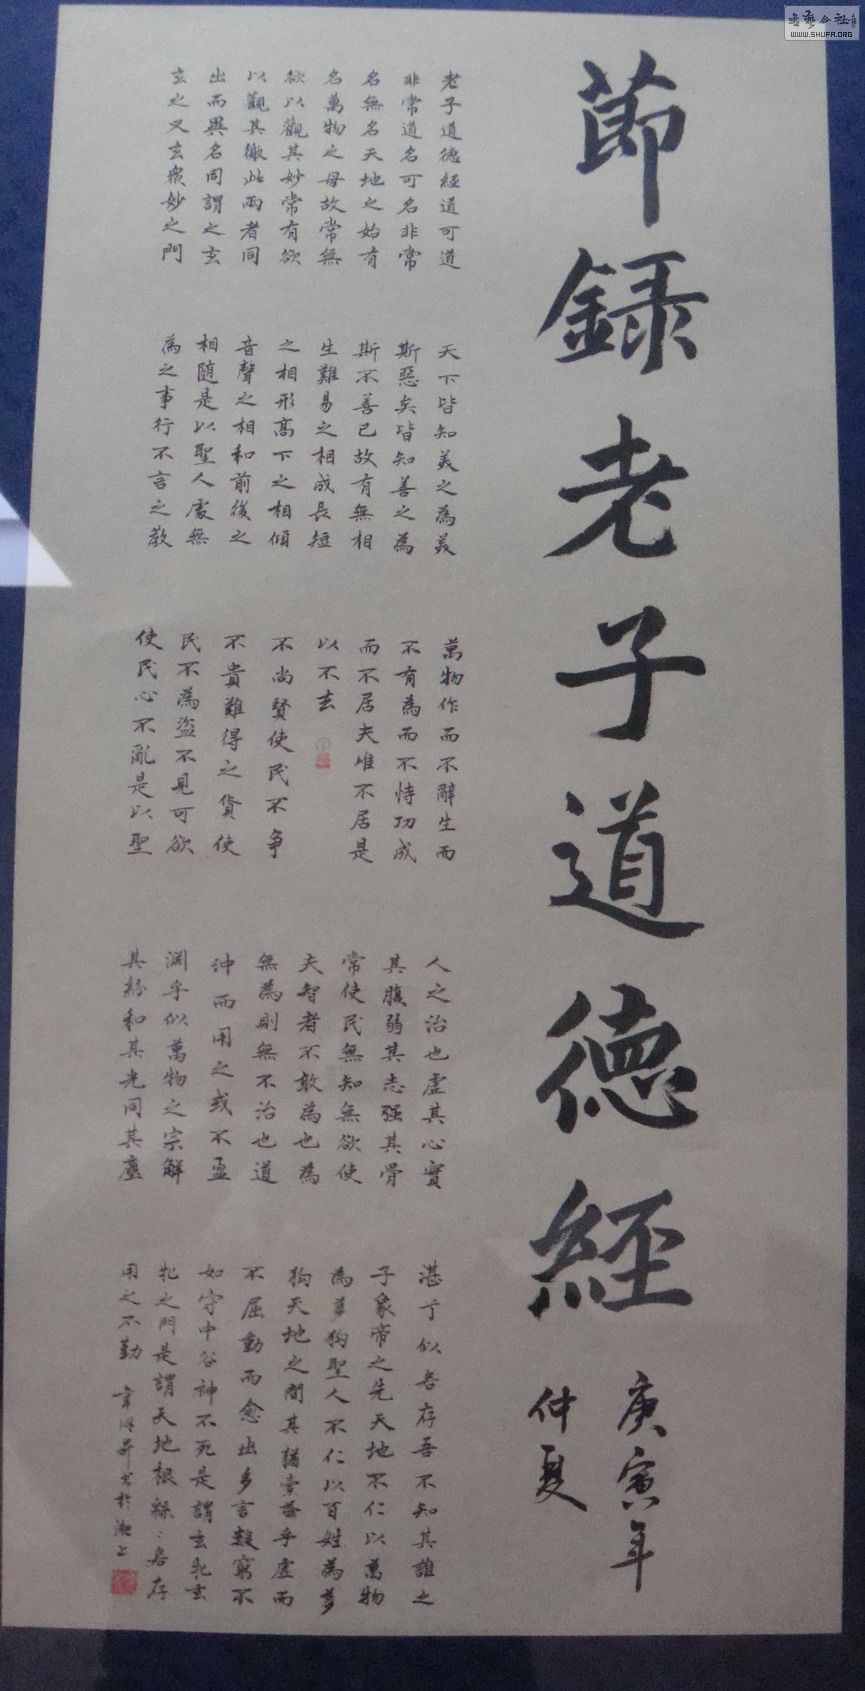 書藝公社
WWW.SHUFA.ORG
節錄老子道德經
庚寅年
仲夏
老子道德經道可道
非常道名可名非常
名無名天地之始有
名萬物之母故常無
欲以觀其妙常有欲
以觀其徼此兩者同
出而異名同謂之玄
玄之又玄衆妙之門
天下皆知美之為美
斯惡矣皆知善之為
斯不善已故有無相
生難易之相成長短
之相形高下之相傾
音聲之相和前後之
相随是以聖人處無
為之事行不言之教
萬物作而不辭生而
不有為而不恃功成
而不居夫唯不居是
以不去
不尚賢使民不争
不貴難得之貨使
民不為盗不見可欲
使民心不亂是以聖
人之治也虛其心實
其腹弱其志强其骨
常使民無知無欲使
夫智者不敢為也為
無為則無不治也道
沖而用之或不盈
淵乎似萬物之宗解
其紛和其光同其塵
湛兮似若存吾不知其誰之
子象帝之先天地不仁以萬物
為芻狗聖人不仁以百姓為芻
狗天地之間其猶橐籥乎虛而
不屈動而愈出多言數窮不
如守中谷神不死是謂玄牝玄
牝之門是謂天地根緜〻若存
用之不勤